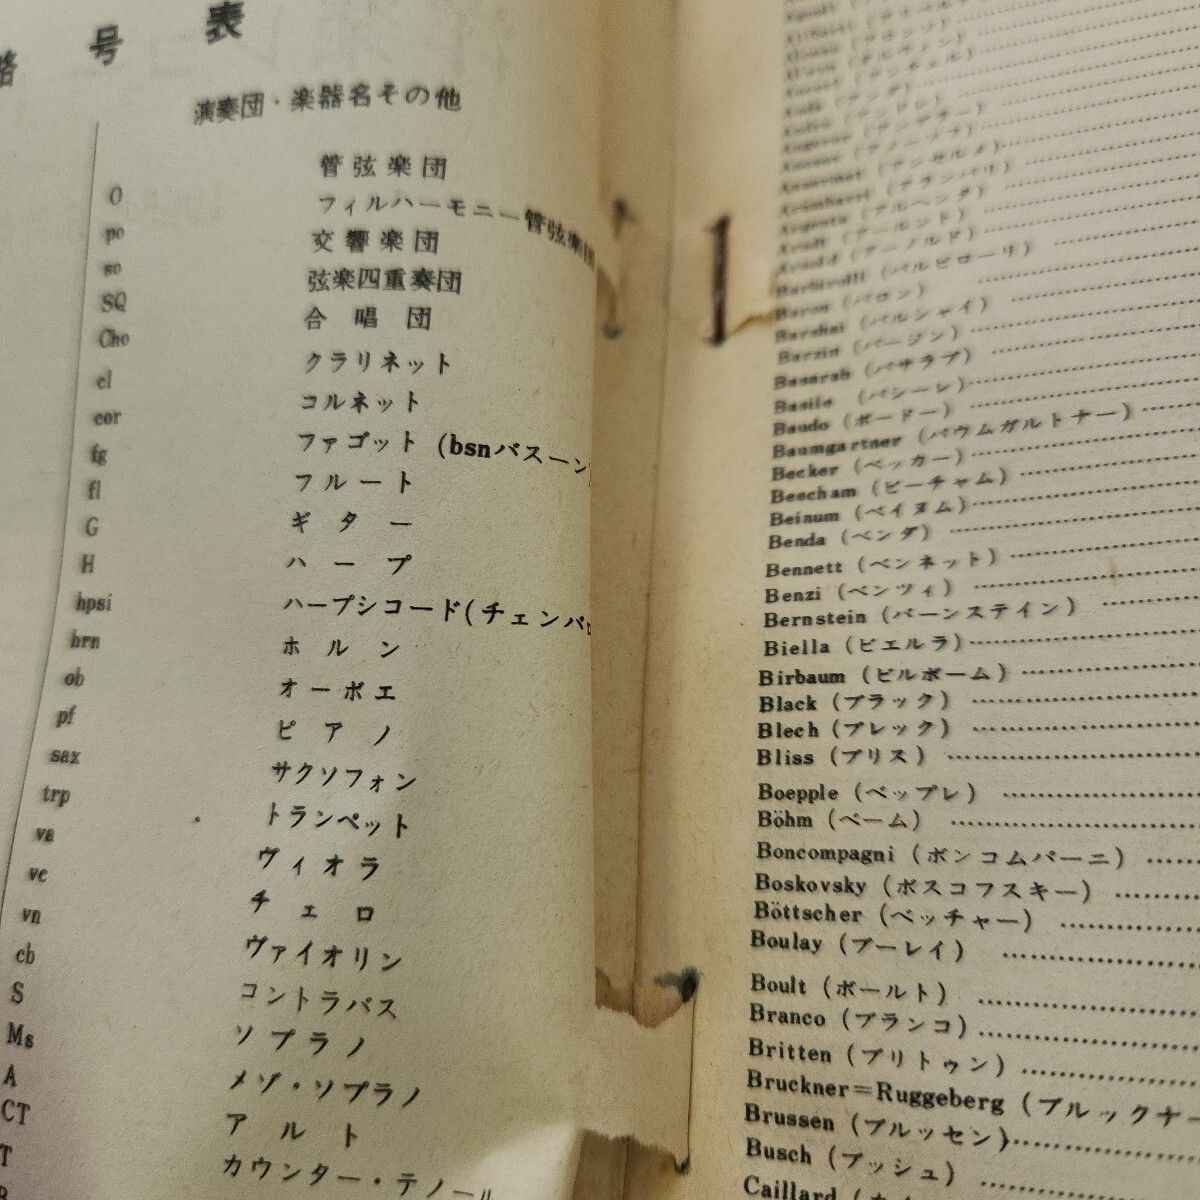 略号表
演奏団・楽器名その他
O 管弦楽団
po フィルハーモニー管弦楽団
so 交響楽団
SQ 弦楽四重奏団
Cho 合唱団
cl クラリネット
cor コルネット
fg ファゴット (bsnバスーン)
fl フルート
G ギター
H ハープ
hpsi ハープシコード(チェンバロ
hrn ホルン
ob オーボエ
pf ピアノ
sax サクソフォン
trp トランペット
va ヴィオラ
vc チェロ
vn ヴァイオリン
cb コントラバス
S ソプラノ
Ms メゾ・ソプラノ
A アルト
CT カウンター・テノール
T
Andersen
Ansermet (アンセルメ)
Arámbarri (アランバリ)
Argenta (アルヘンタ)
Arndt (アールント)
Arnold (アーノルド)
Barbirolli (バルビローリ)
Baron (バロン)
Barshai (バルシャイ)
Barzin (バージン)
Basarab (バサラブ)
Basile (バシーレ)
Baudo (ボードー)
Baumgartner (バウムガルトナー)
Becker (ベッカー)
Beecham (ビーチャム)
Beinum (ベイヌム)
Benda (ベンダ)
Bennett (ベンネット)
Benzi (ベンツィ)
Bernstein (バーンステイン)
Biella (ビエルラ)
Birbaum (ビルボーム)
Black (ブラック)
Blech (ブレック)
Bliss (ブリス)
Boepple (ベップレ)
Böhm (ベーム)
Boncompagni (ボンコムパーニ)
Boskovsky (ボスコフスキー)
Böttscher (ベッチャー)
Boulay (ブーレイ)
Boult (ボールト)
Branco (ブランコ)
Britten (ブリトゥン)
Bruckner=Ruggeberg (ブルックナー
Brussen (ブルッセン)
Busch (ブッシュ)
Caillard